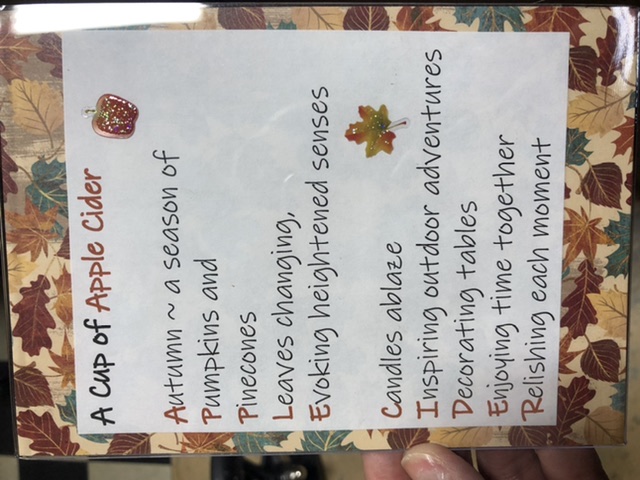 A Cup of Apple Cider
Autumn ~ a season of
Pumpkins and
Pinecones
Leaves changing,
Evoking heightened senses
Candles ablaze
Inspiring outdoor adventures
Decorating tables
Enjoying time together
Relishing each moment